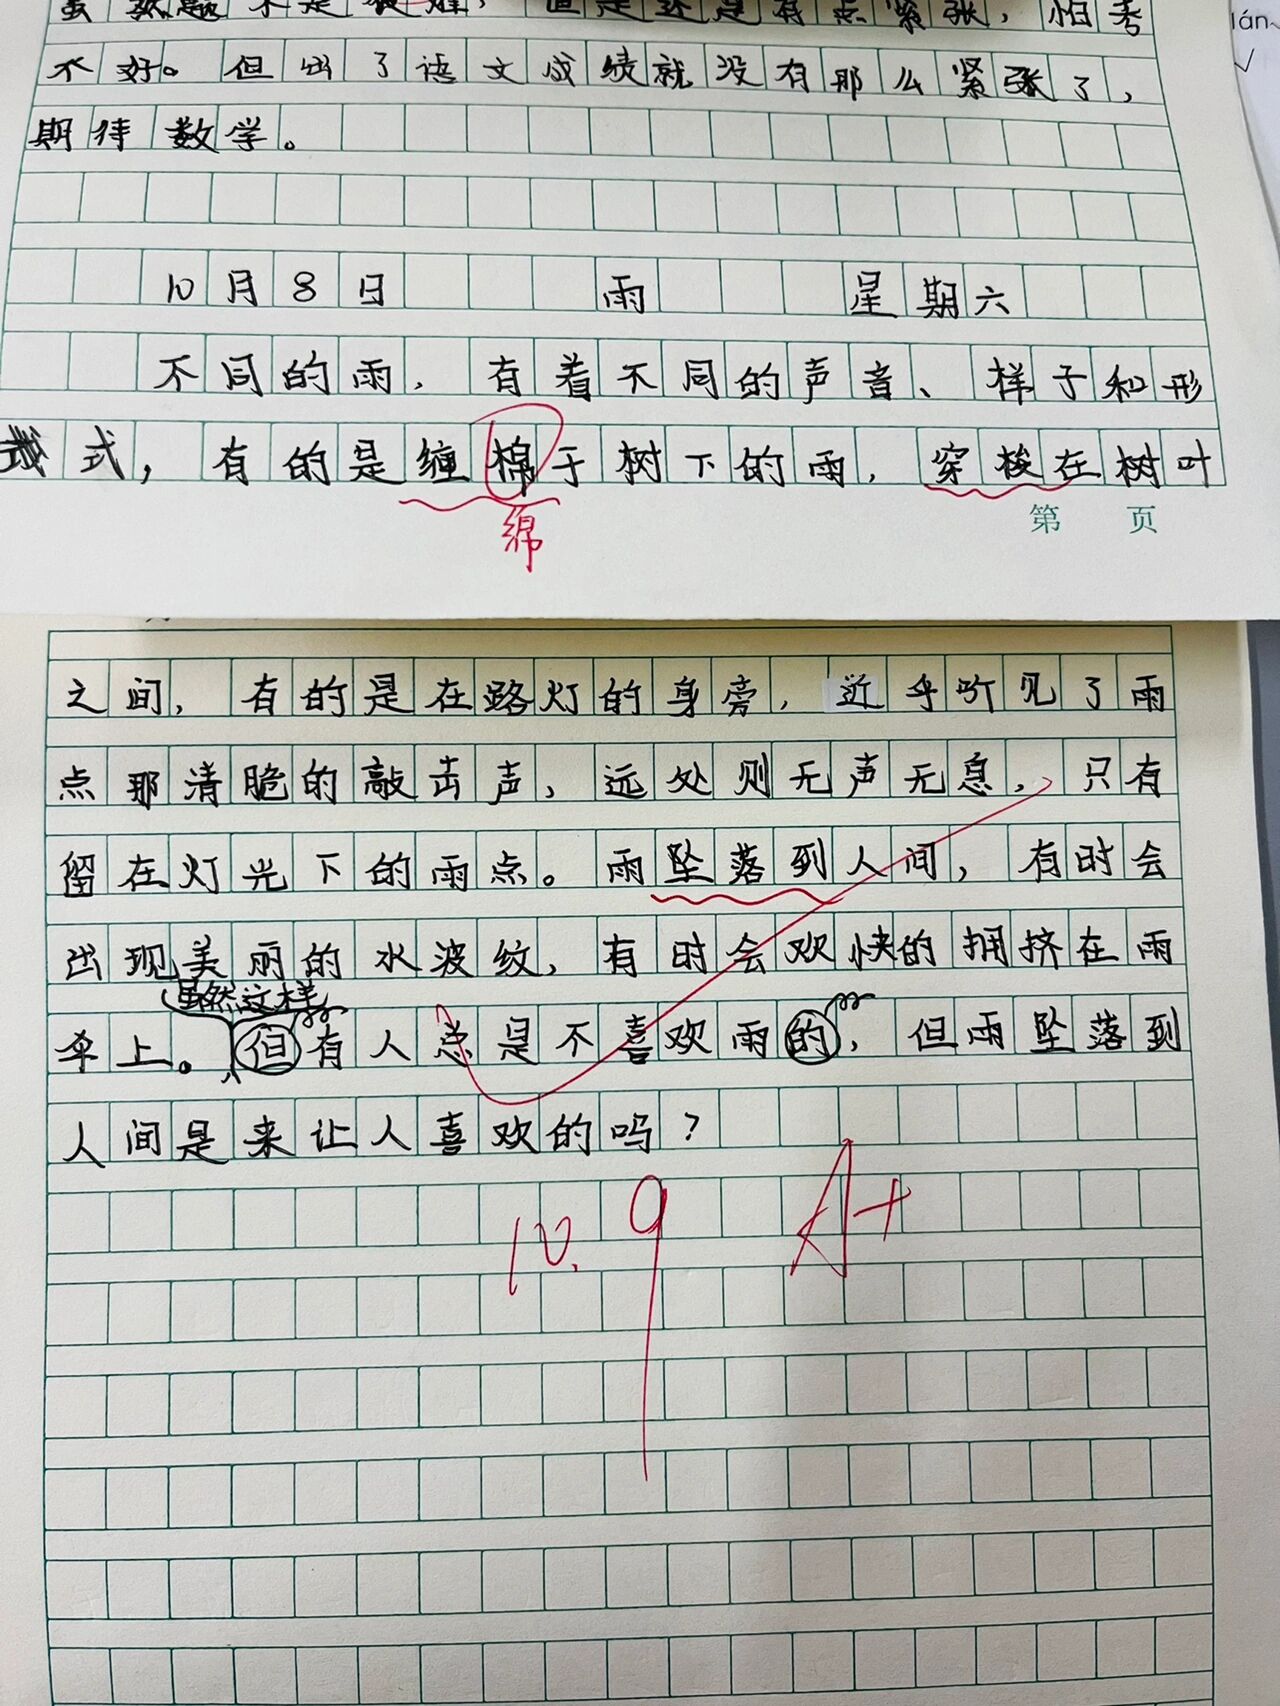 不是很难，但是还是有点紧张，怕考
不好。但出了语文成绩就没有那么紧张了，
期待数学。
10月8日 雨 星期六
不同的雨，有着不同的声音、样子和形
式，有的是缠棉于树下的雨，穿梭在树叶
绵
第 页
之间，有的是在路灯的身旁，近乎听见了雨
点那清脆的敲击声，远处则无声无息，只有
留在灯光下的雨点。雨坠落到人间，有时会
出现美丽的水波纹，有时会欢快的拥挤在雨
虽然这样
伞上。但有人总是不喜欢雨的，但雨坠落到
人间是来让人喜欢的吗？
10.9 A+
lán